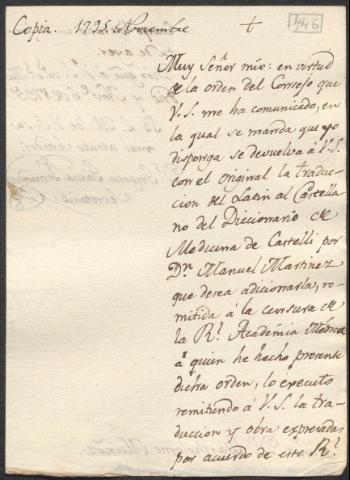 Copia. 1795. Noviembre +
446
Muy Señor mio: en virtud
de la orden del Consejo que
V.S. me ha comunicado, en
la qual se manda que yo
disponga se devuelva á V.S.
con el original la traduc
cion del Latin al Castella
no del Diccionario de
Medicina de Castelli por
Dn. Manuel Martinez
que desea adicionarla, re-
mitida á la censura de
la Rl. Académia Médica
á quien he hecho presente
dicha orden, lo executo
remitiendo á V.S. la tra-
duccion y obra expresadas
por acuerdo de este Rl.